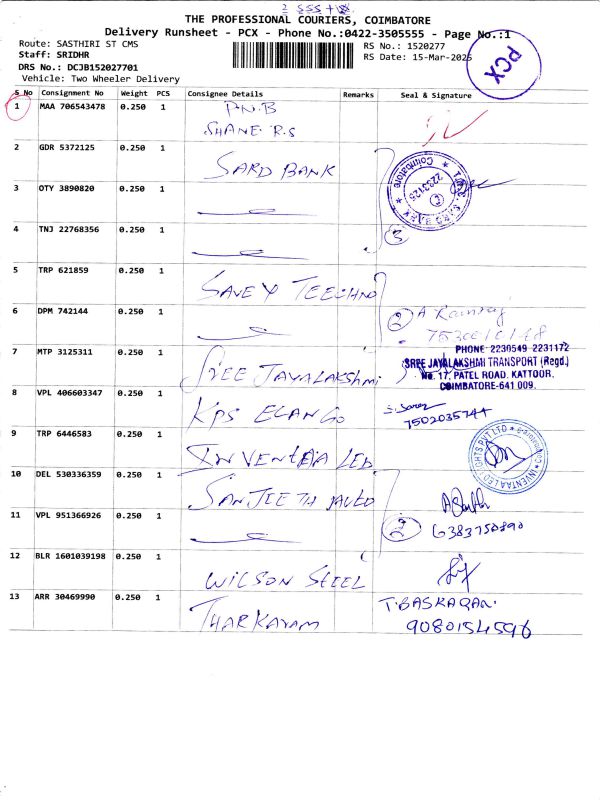 THE PROFESSIONAL COURIERS, COIMBATORE
Delivery Runsheet - PCX - Phone No.:0422-3505555 - Page No.:1
Route: SASTHIRI ST CMS
RS No.: 1520277
Staff: SRIDHR
RS Date: 15-Mar-2025
DRS No.: DCJB152027701
Vehicle: Two Wheeler Delivery
PCX
S No Consignment No Weight PCS Consignee Details Remarks Seal & Signature
1 MAA 706543478 0.250 1 P.N.B
SHANE R.S
2 GDR 5372125 0.250 1 SARD BANK
Coimbatore
2233125
3 OTY 3890820 0.250 1
4 TNJ 22768356 0.250 1
3
5 TRP 621859 0.250 1 SAVEY TEECHNO
6 DPM 742144 0.250 1
2
PHONE 2230549 2231172
7 MTP 3125311 0.250 1 SREE JAYALAKSHMI
SREE JAYALAKSHMI TRANSPORT (Regd.)
No. 17, PATEL ROAD, KATTOOR,
COIMBATORE-641 009.
8 VPL 406603347 0.250 1 KPS ELANGO
7502035744
9 TRP 6446583 0.250 1 INVENTAA LED
INVENTAA LED LIGHTS PVT LTD
10 DEL 530336359 0.250 1 SANJEETH
11 VPL 951366926 0.250 1
6383750890
12 BLR 1601039198 0.250 1 WILSON STEEL
13 ARR 30469990 0.250 1 THARKAYAM
T.BASKARAN.
9080154596